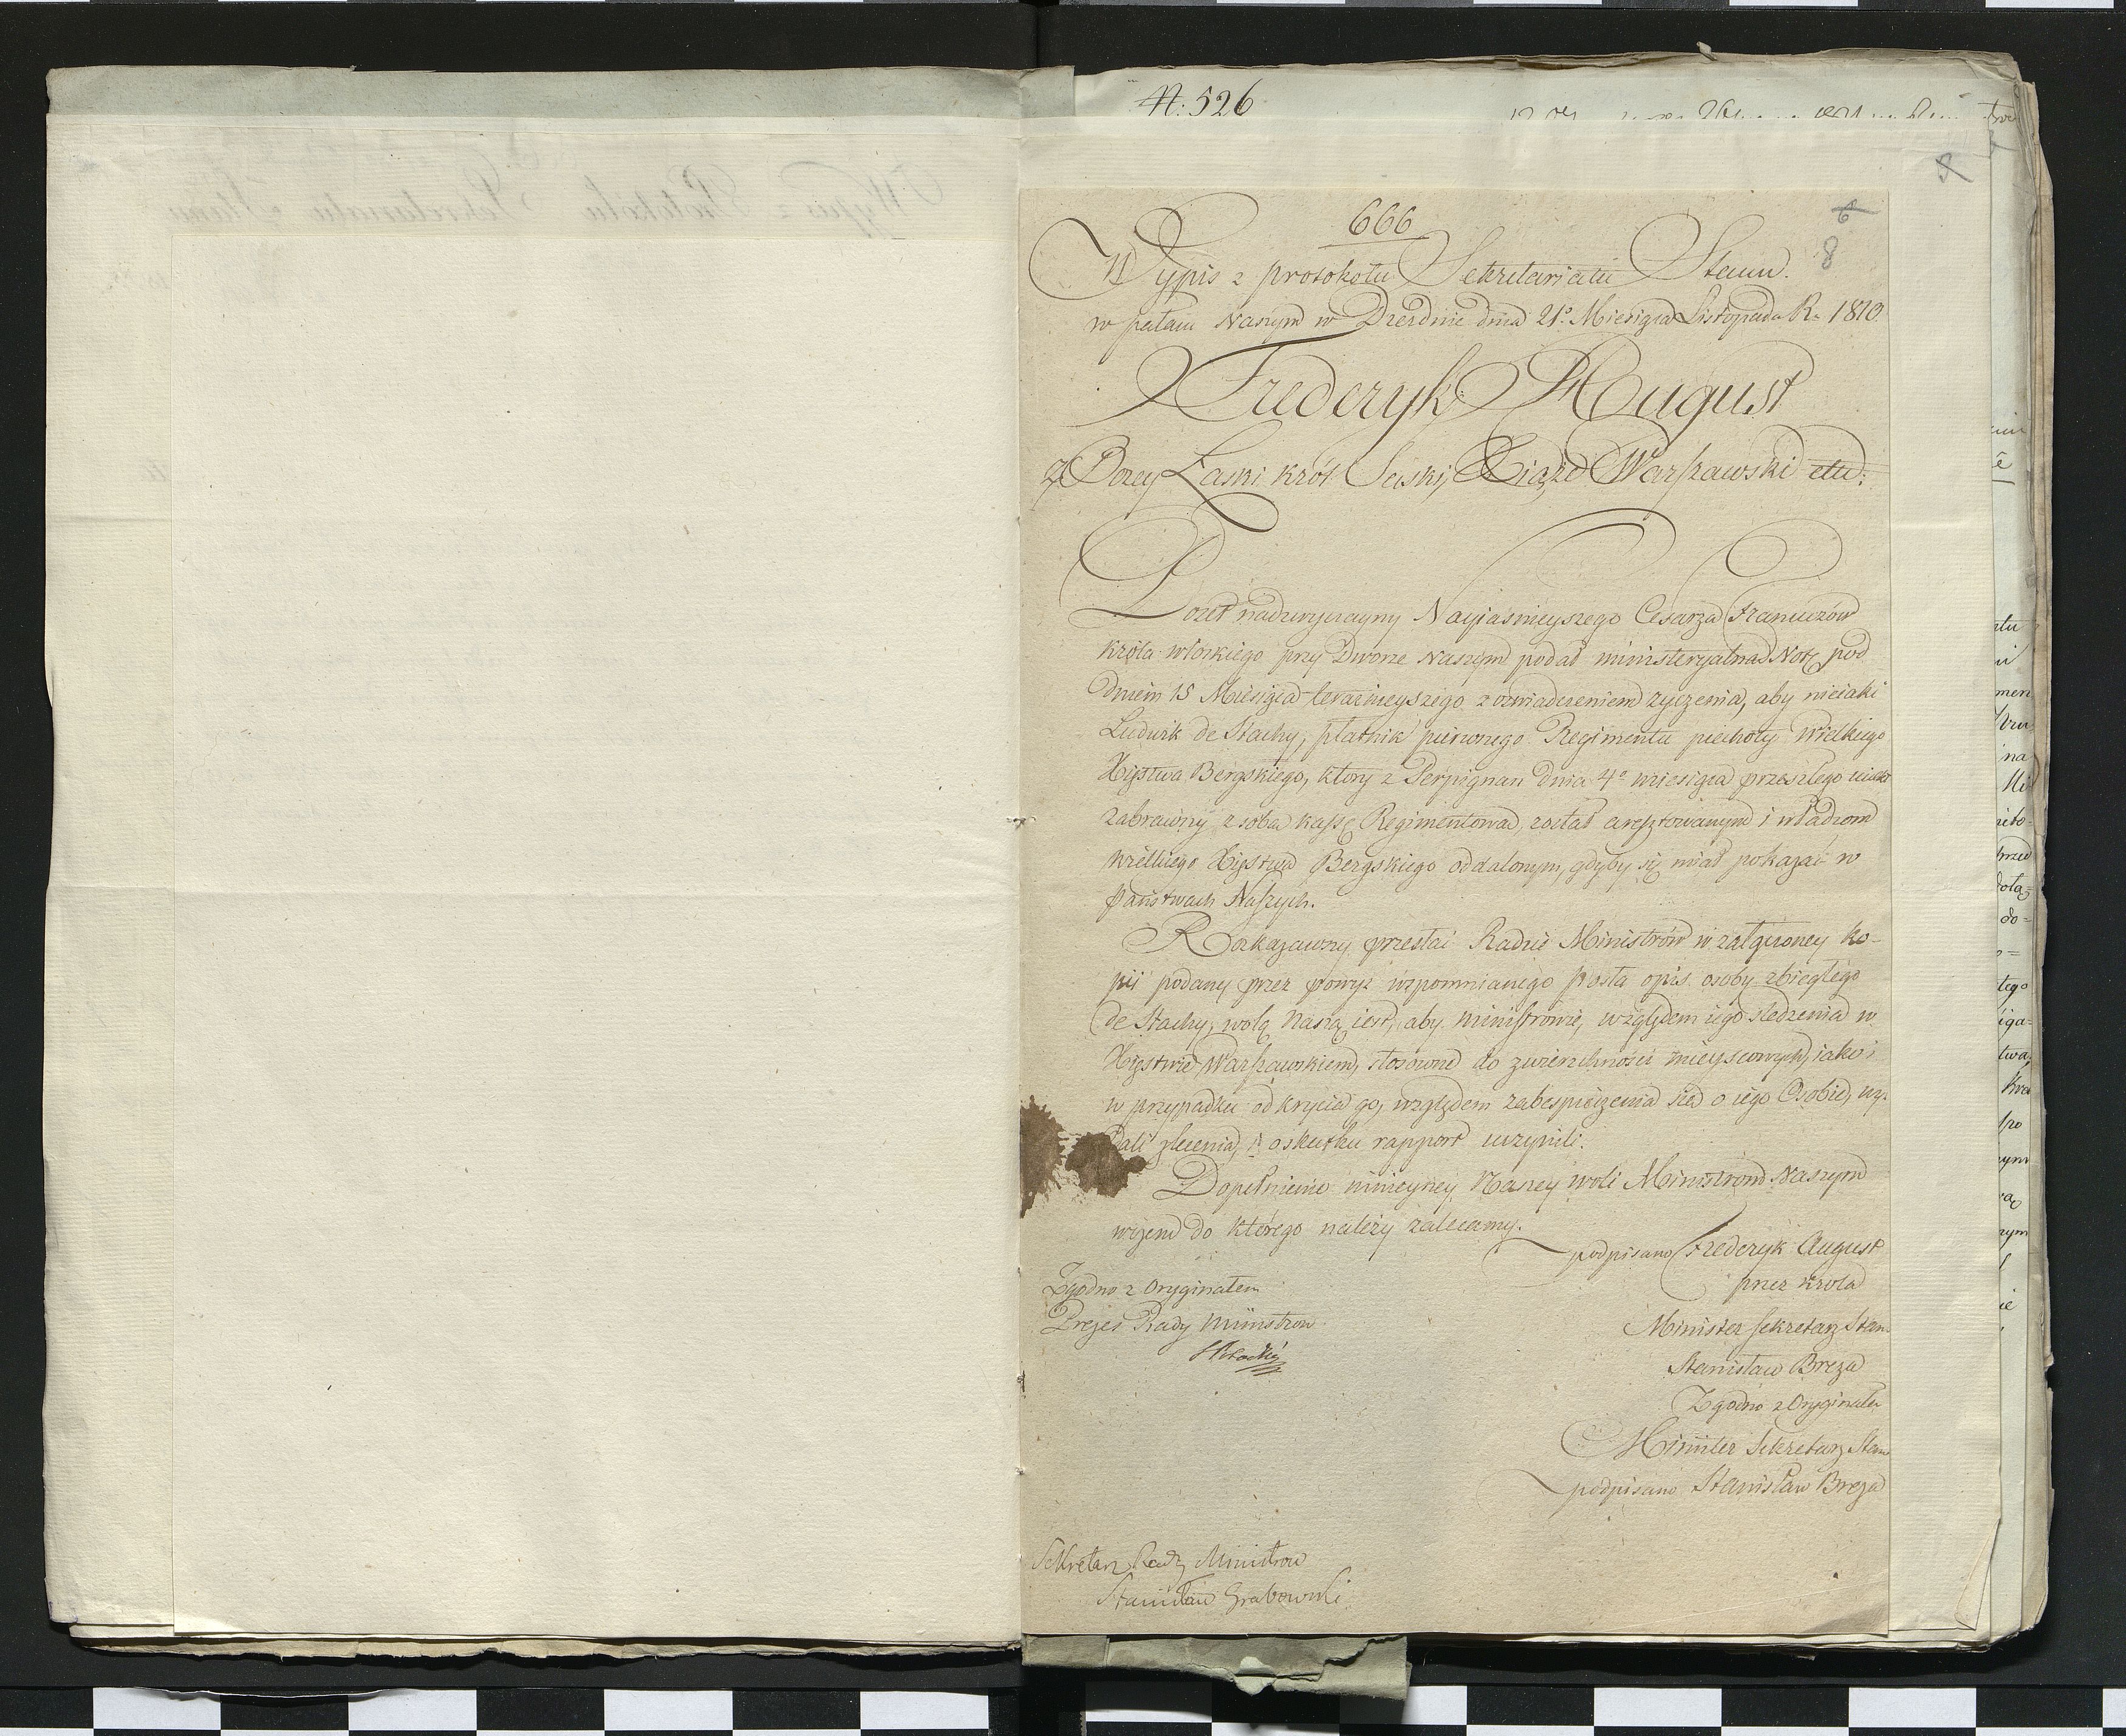 N: 526
8
666
6
8
Wypis z protokołu Sekretariatu Stanu.
w pałacu Naszym w Dreznie dnia 21º Miesiąca Listopada R. 1810.
Frederyk August
z Bożey Łaski Król Saski, Xiąże Warszawski etc:
Poseł nadzwyczayny Nayiaśnieyszego Cesarza Francuzów
Króla włoskiego przy Dworze Naszym podał ministeryalną Notę pod
dniem 15 Miesiąca teraźnieyszego z oświadczeniem życzenia, aby nieiaki
Ludwik de Stachy, płatnik pierwszego Regimentu piechoty Wielkiego
Xięstwa Bergskiego, który z Perpignan dnia 4º miesiąca przeszłego uciekł
zabrawszy z sobą kassę Regimentową, został aresztowanym i władzom
wielkiego Xięstwa Bergskiego oddalonym, gdyby się miał pokazać w
państwach Naszych.
Rozkazawszy przesłać Radzie Ministrów w załączoney ko-
pii podany przez powyż wspomnianego Posła opis osoby zbiegłego
de Stachy, wolą Naszą iest, aby Ministrowie, względem iego śledzenia w
Xięstwie Warszawskiem, stosowne do zwierzchności mieyscowych, iako i
w przypadku odkrycia go, względem zabespieczenia się o iego Osobie, wy-
dali zlecenia, i o skutku rapport uczynili.
Dopełnienie ninieyszey Naszey woli Ministrom Naszym
w czem do którego należy zalecamy.
podpisano Frederyk August
przez Króla
Minister Sekretarz Stanu
Stanisław Breza
Zgodno z Oryginałem
Minister Sekretarz Stanu
podpisano Stanisław Breza
Zgodno z Oryginałem
Prezes Rady Ministrów
SPotocki
Sekretarz Rady Ministrow
Stanisław Grabowski